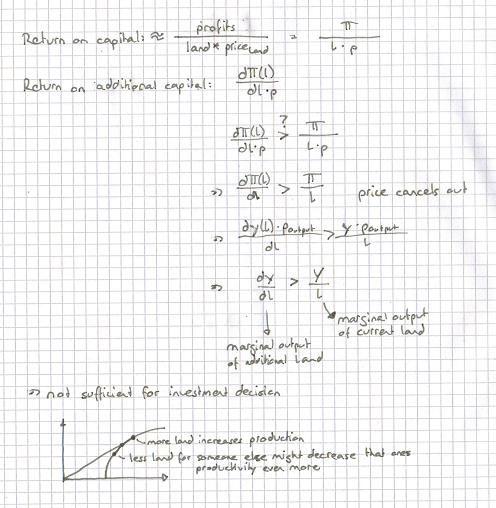 Return on capital: ≈ profits / land * price land = π / L · p
Return on additional capital: dπ(L) / dL · p
dπ(L) / dL · p >? π / L · p
⇒ dπ(L) / dL > π / L price cancels out
⇒ dy(L) · p output / dL > Y · p output / L
⇒ dy / dL > Y / L
marginal output
of current land
marginal output
of additional land
⇒ not sufficient for investment decision
more land increases production
less land for someone else might decrease that ones
productivity even more